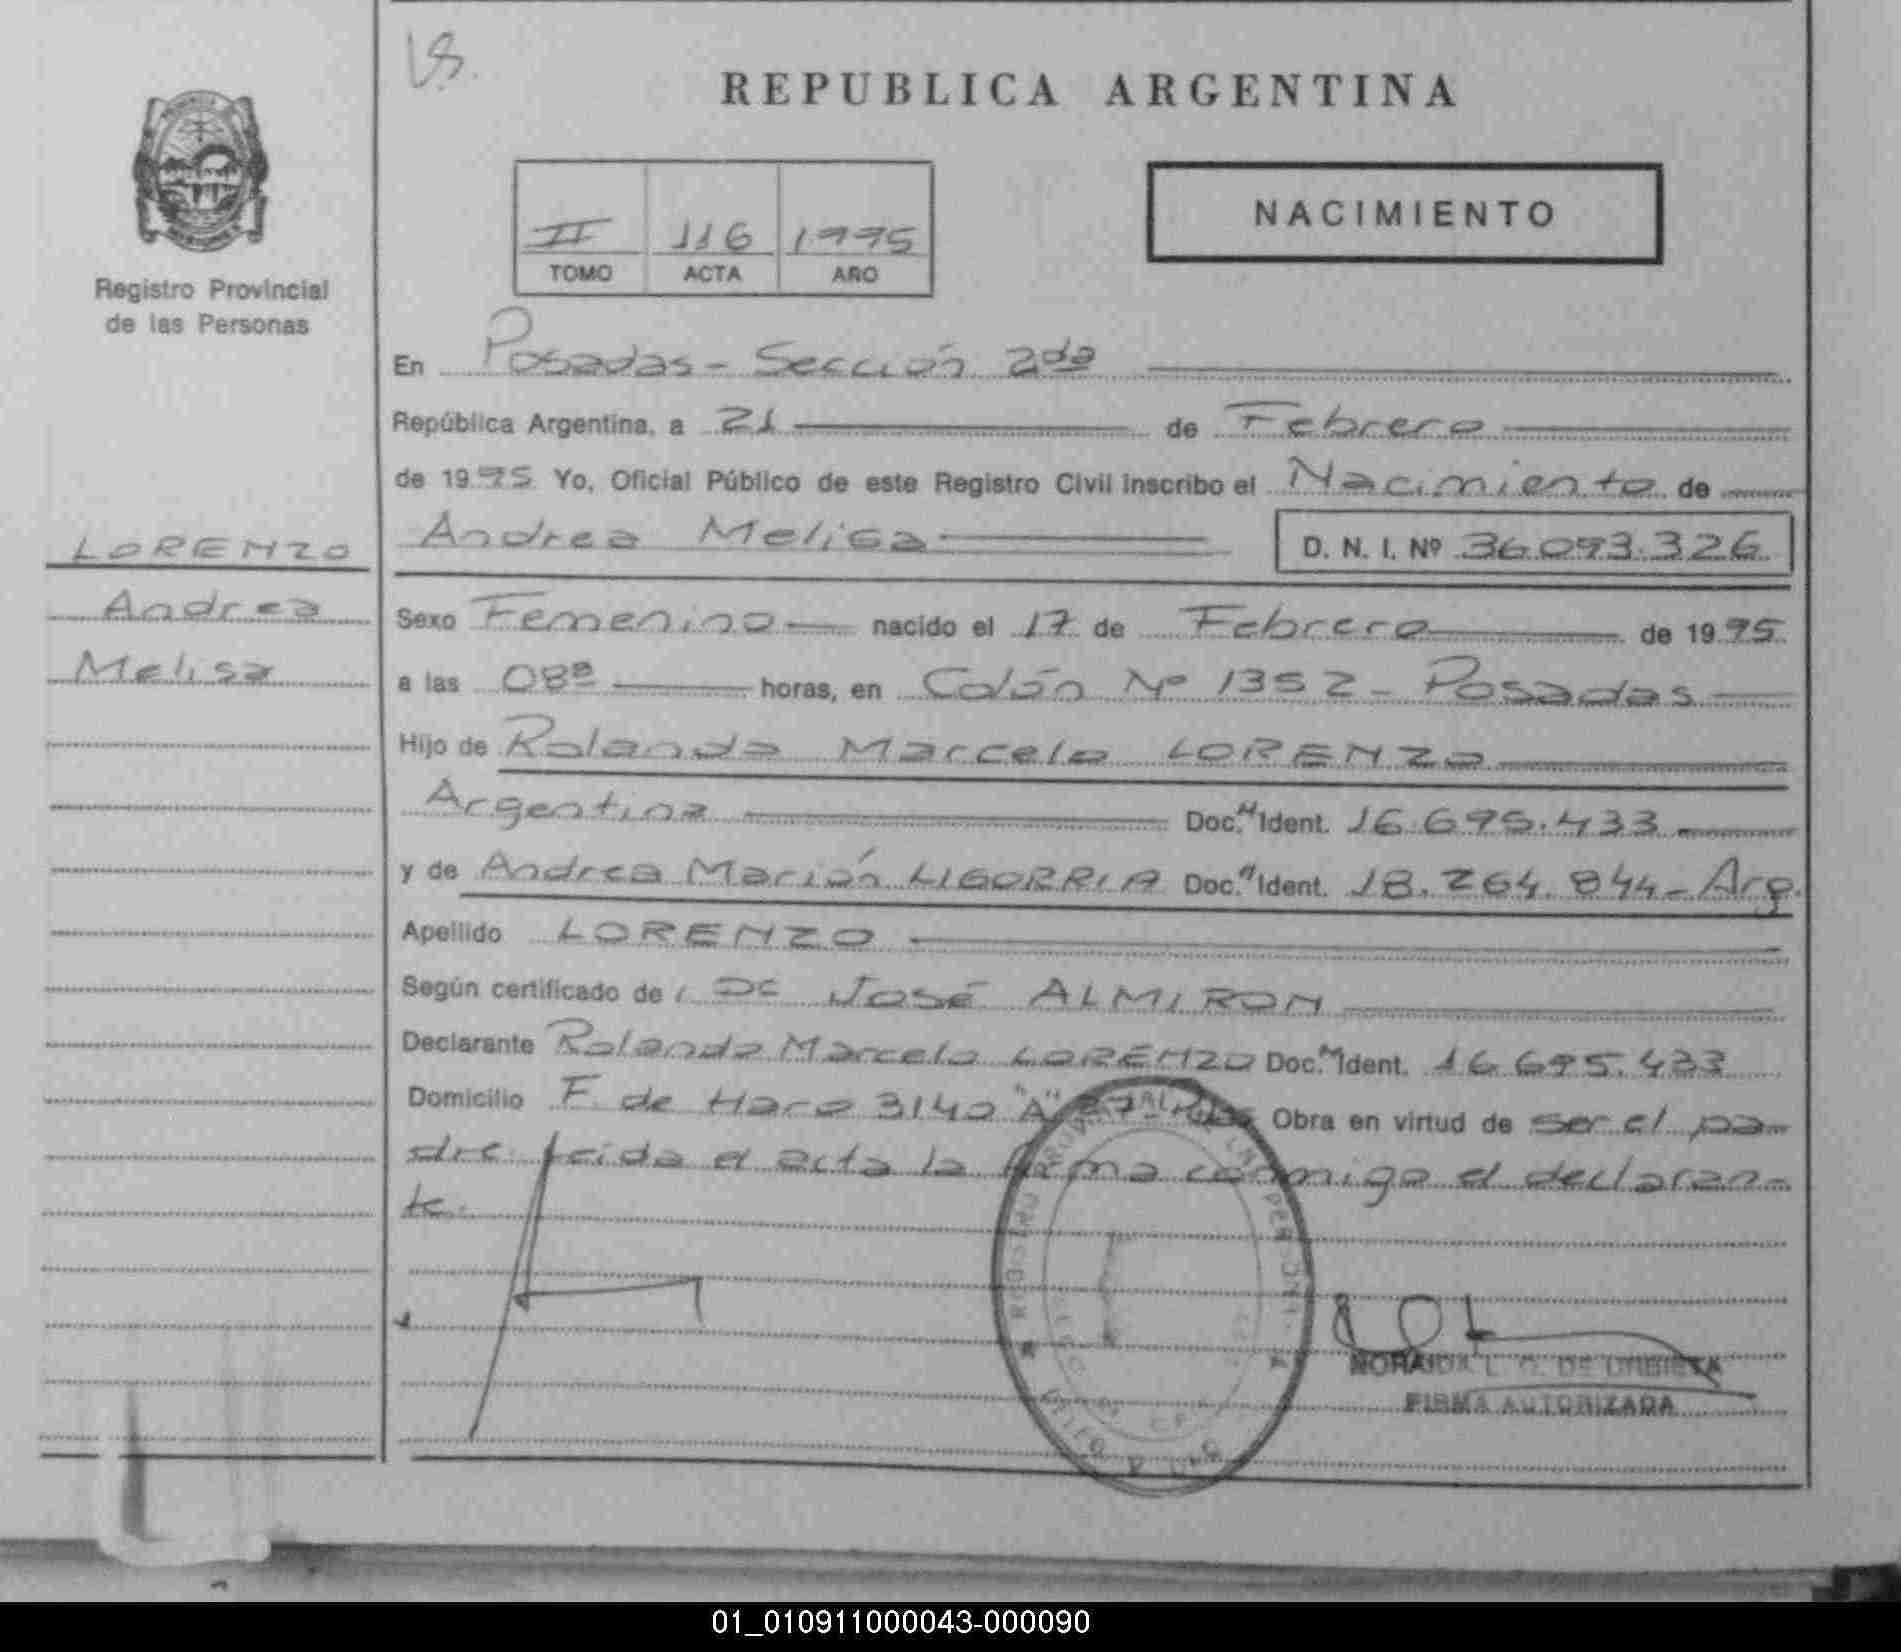 REPUBLICA ARGENTINA
Registro Provincial
de las Personas
II 116 1995
TOMO ACTA AÑO
NACIMIENTO
LORENZO
Andrea
Melisa
En Posadas - Sección 2da
República Argentina, a 21 de Febrero
de 1995 Yo, Oficial Público de este Registro Civil inscribo el Nacimiento de
Andrea Melisa D. N. I. Nº 36.093.326
Sexo Femenino nacido el 17 de Febrero de 1995
a las 08 horas, en Colón Nº 1352 - Posadas
Hijo de Rolando Marcelo LORENZO
Argentina Doc. Ident. 16.695.433
y de Andrea Marión LIGORRIA Doc. Ident. 18.264.844 - Arg.
Apellido LORENZO
Según certificado de José ALMIRON
Declarante Rolando Marcelo LORENZO Doc. Ident. 16.695.433
Domicilio F. de Haro 3140 "A" Obra en virtud de ser el pa-
dre leida el acta la firma conmigo el declaran-
te.
FIRMA AUTORIZADA
01_010911000043-000090